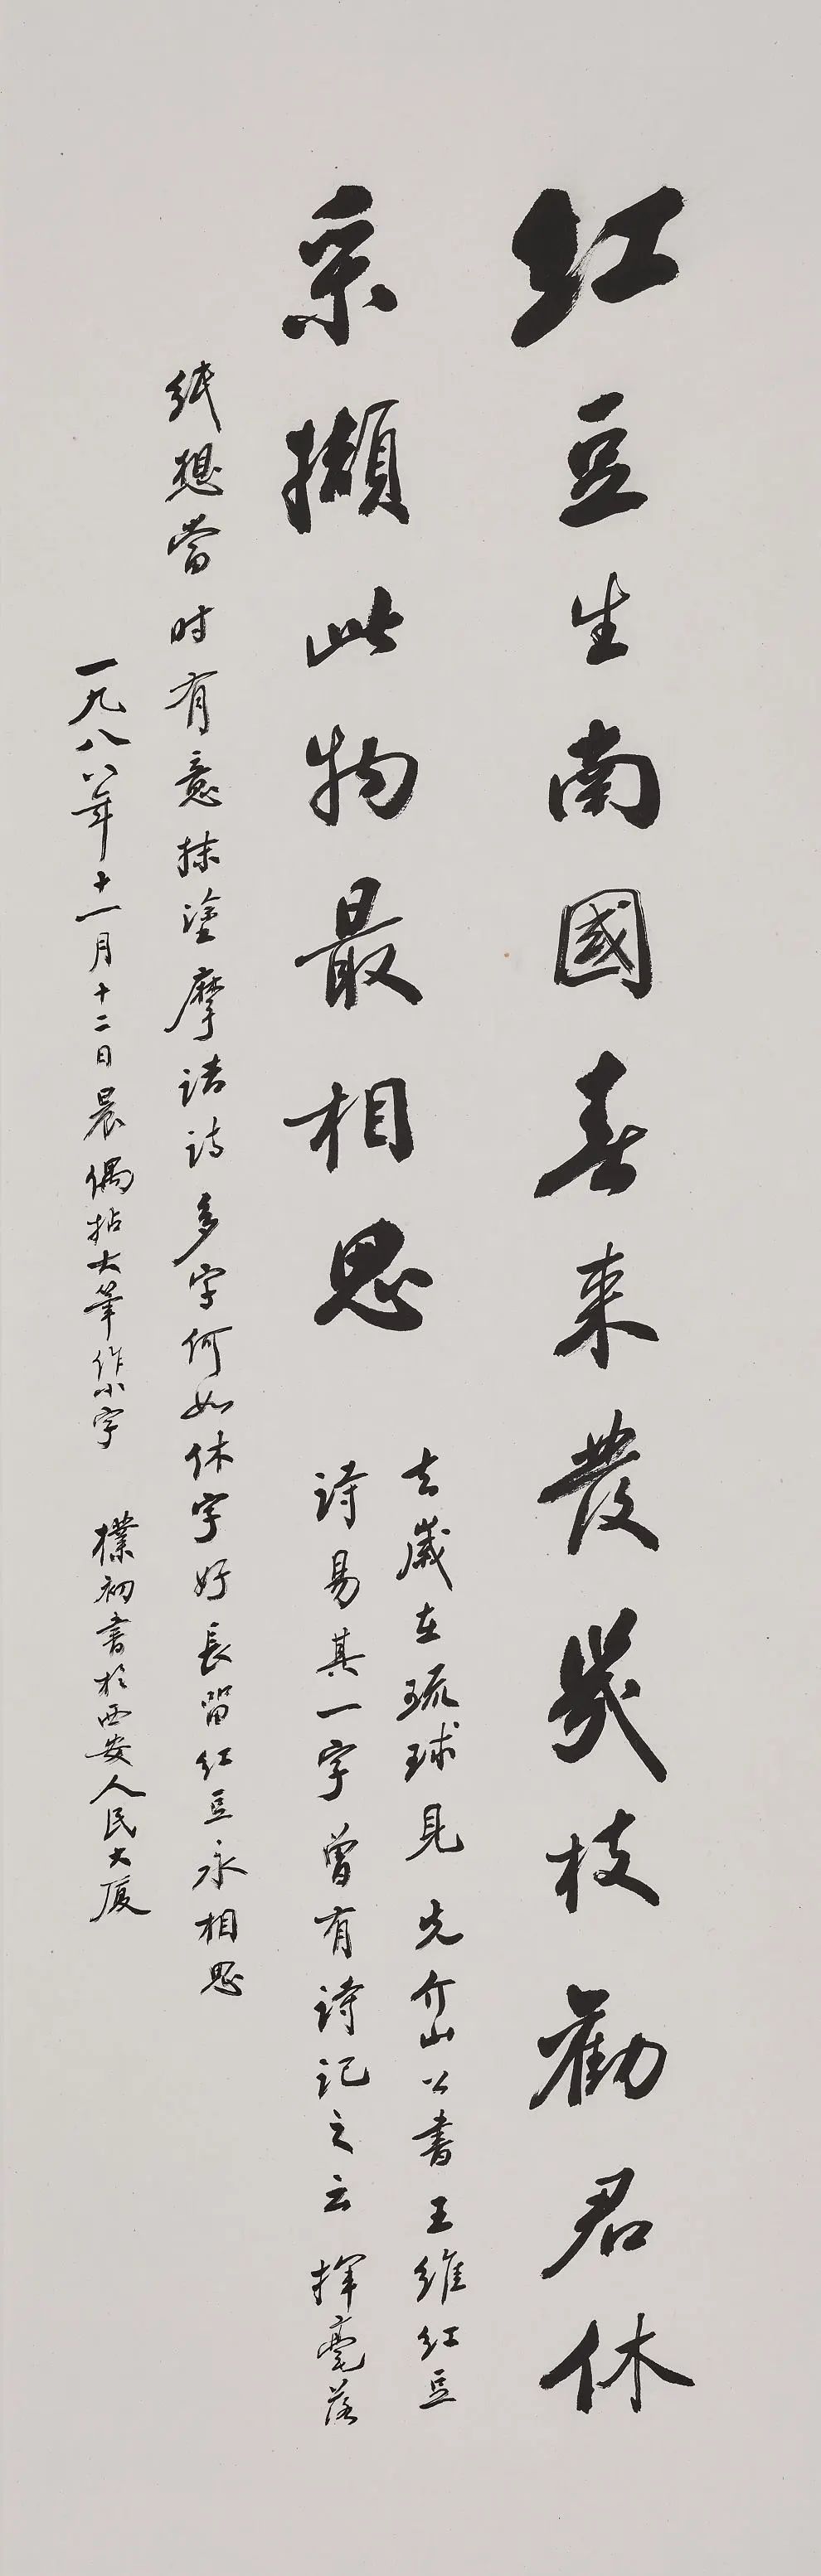 紅豆生南國春來發幾枝勸君休
采擷此物最相思
去歲在琉球見先介山公書王維紅豆
詩易其一字曾有詩記之云揮毫落
紙想當时有意抹塗摩詰詩多字何如休字好長留紅豆永相思
一九八八年十一月十二日晨偶拈大筆作小字 樸初書於西安人民大廈